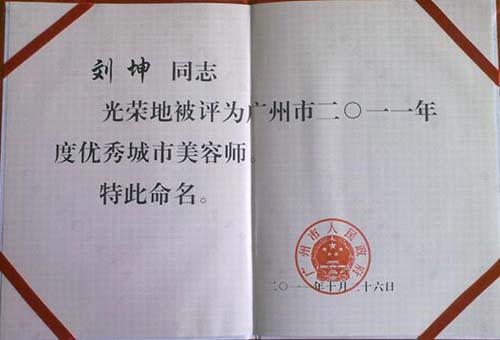 刘坤 同志
光荣地被评为广州市二〇一一年
度优秀城市美容师。
特此命名。
广州市人民政府
二〇一一年十月二十六日